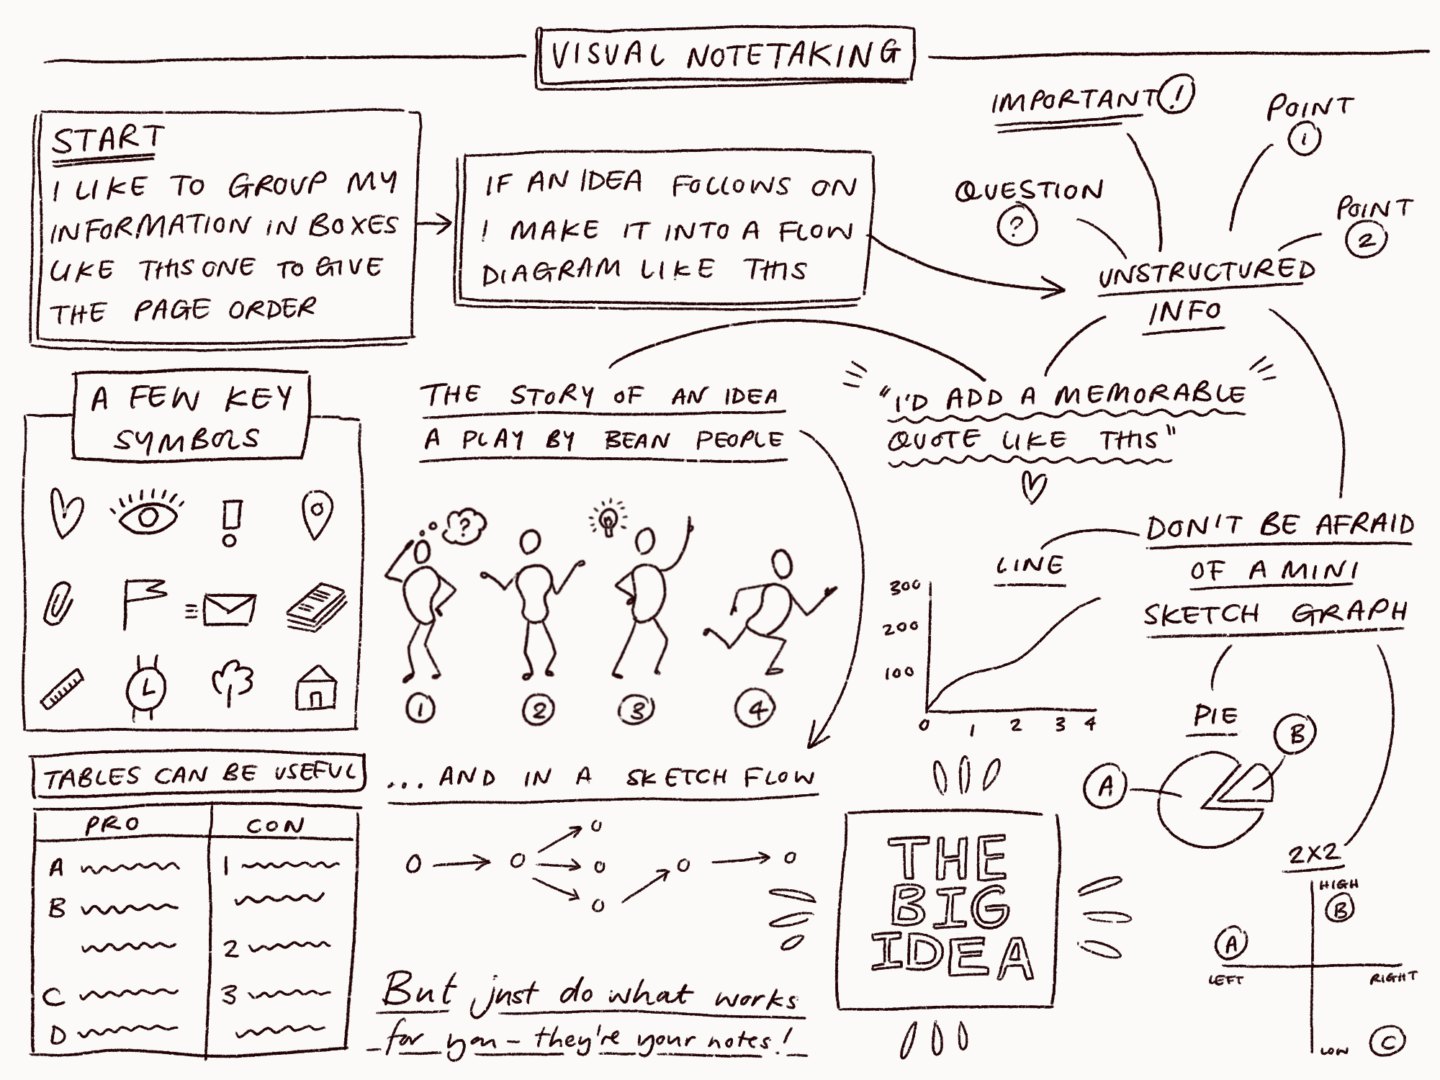 VISUAL NOTETAKING
START
I LIKE TO GROUP MY
INFORMATION IN BOXES
LIKE THIS ONE TO GIVE
THE PAGE ORDER
IF AN IDEA FOLLOWS ON
I MAKE IT INTO A FLOW
DIAGRAM LIKE THIS
IMPORTANT !
POINT
1
QUESTION
?
POINT
2
UNSTRUCTURED
INFO
A FEW KEY
SYMBOLS
THE STORY OF AN IDEA
A PLAY BY BEAN PEOPLE
?
1 2 3 4
"I'D ADD A MEMORABLE
QUOTE LIKE THIS"
DON'T BE AFRAID
OF A MINI
SKETCH GRAPH
LINE
300
200
100
0 1 2 3 4
PIE
B
A
2X2
HIGH
B
A
LEFT
RIGHT
LOW
C
TABLES CAN BE USEFUL
PRO CON
A 1
B
2
C 3
D
...AND IN A SKETCH FLOW
THE
BIG
IDEA
But just do what works
for you - they're your notes!